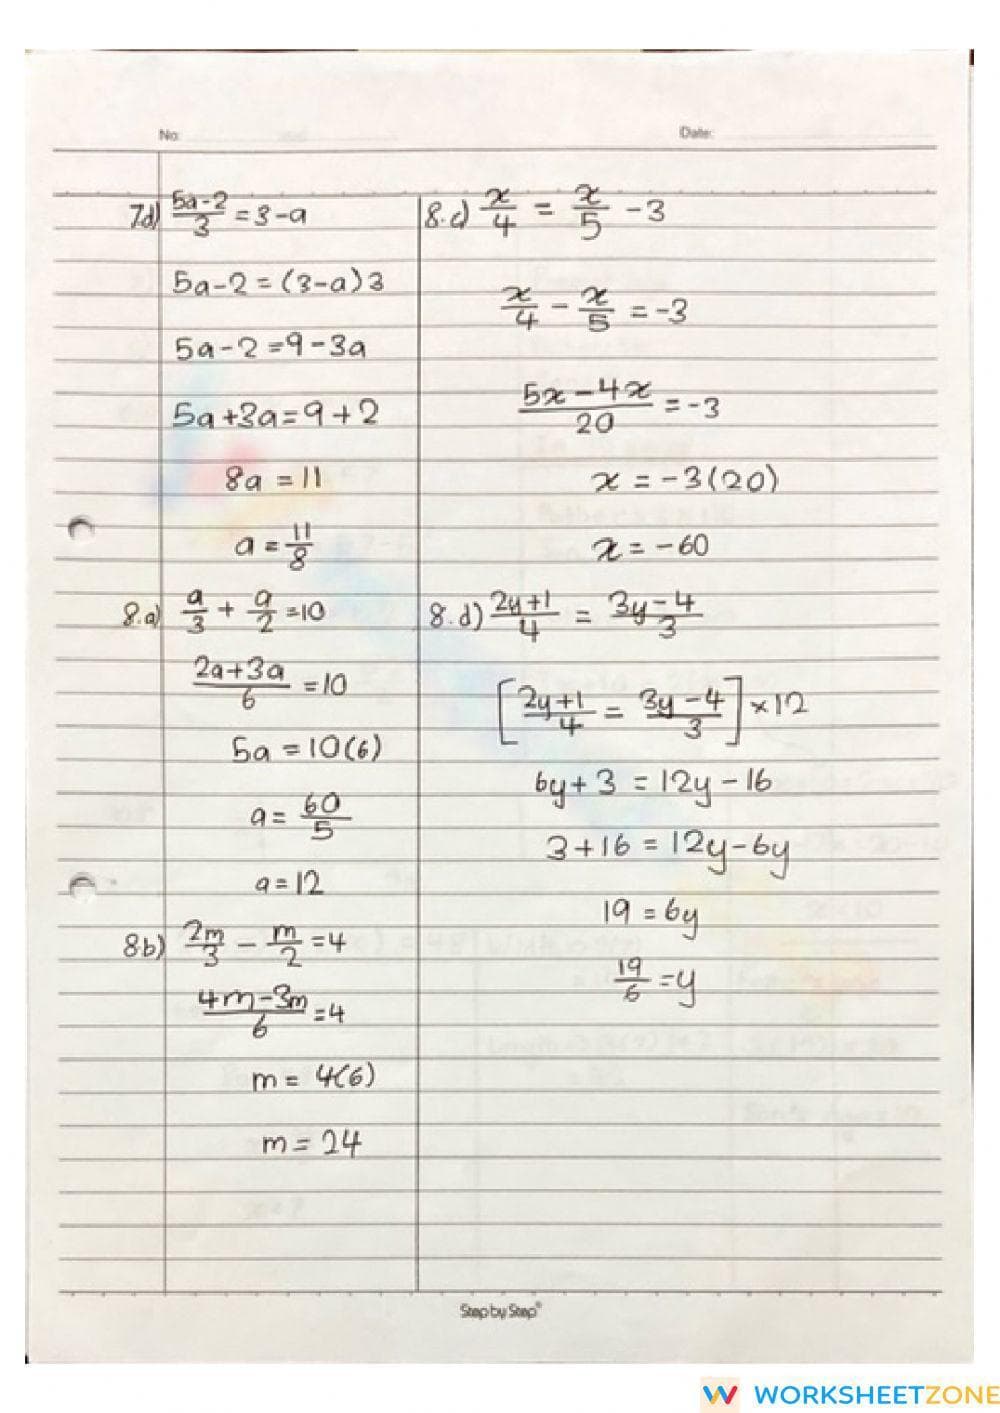 No:
Date:
7d) (5a-2)/3 = 3-a
5a-2 = (3-a)3
5a-2 = 9-3a
5a+3a = 9+2
8a = 11
a = 11/8
8.a) a/3 + a/2 = 10
(2a+3a)/6 = 10
5a = 10(6)
a = 60/5
a = 12
8b) 2m/3 - m/2 = 4
(4m-3m)/6 = 4
m = 4(6)
m = 24
8.c) x/4 = x/5 - 3
x/4 - x/5 = -3
(5x-4x)/20 = -3
x = -3(20)
x = -60
8.d) (2y+1)/4 = (3y-4)/3
[(2y+1)/4 = (3y-4)/3] × 12
6y+3 = 12y-16
3+16 = 12y-6y
19 = 6y
19/6 = y
Step by Step®
WORKSHEETZONE